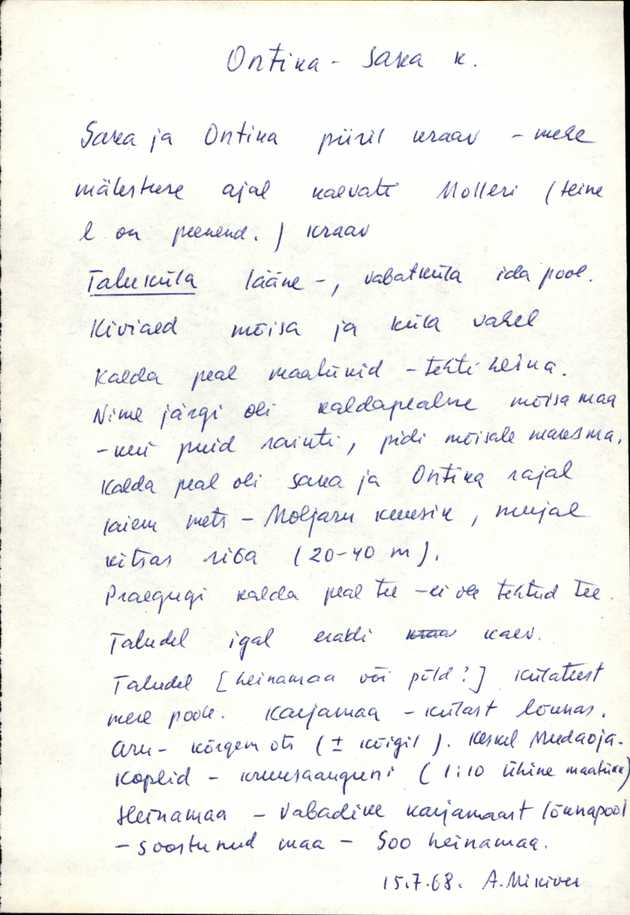 Ontika - Saka k.
Saka ja Ontika piiril kraav - mehe
mälestuse ajal kaevati Molleri (teine
l on peenend.) kraav
Taluküla lääne -, vabatküla ida pool.
Kiviaed mõisa ja küla vahel
Kalda peal maatükid - tehti heina.
Nime järgi oli kaldapealne mõisa maa
- kui puid raiuti, pidi mõisale maksma.
Kalda peal oli Saka ja Ontika rajal
laiem mets - Moljaru kuusik, mujal
kitsas riba (20-40 m).
Praegugi kalda peal tee - ei ole tehtud tee.
Taludel igal eraldi kaev.
Taludel [heinamaa või põld?] külateest
mere poole. Karjamaa - külast lõunas.
Aru - kõrgem ots (± kõigil). Keskel Mudaoja.
Koplid - kruusaauguni (1:10 ühine maatükk)
Heinamaa - vabadike karjamaast lõunapool
- soostunud maa - Soo heinamaa.
15.7.68. A. Mikiver